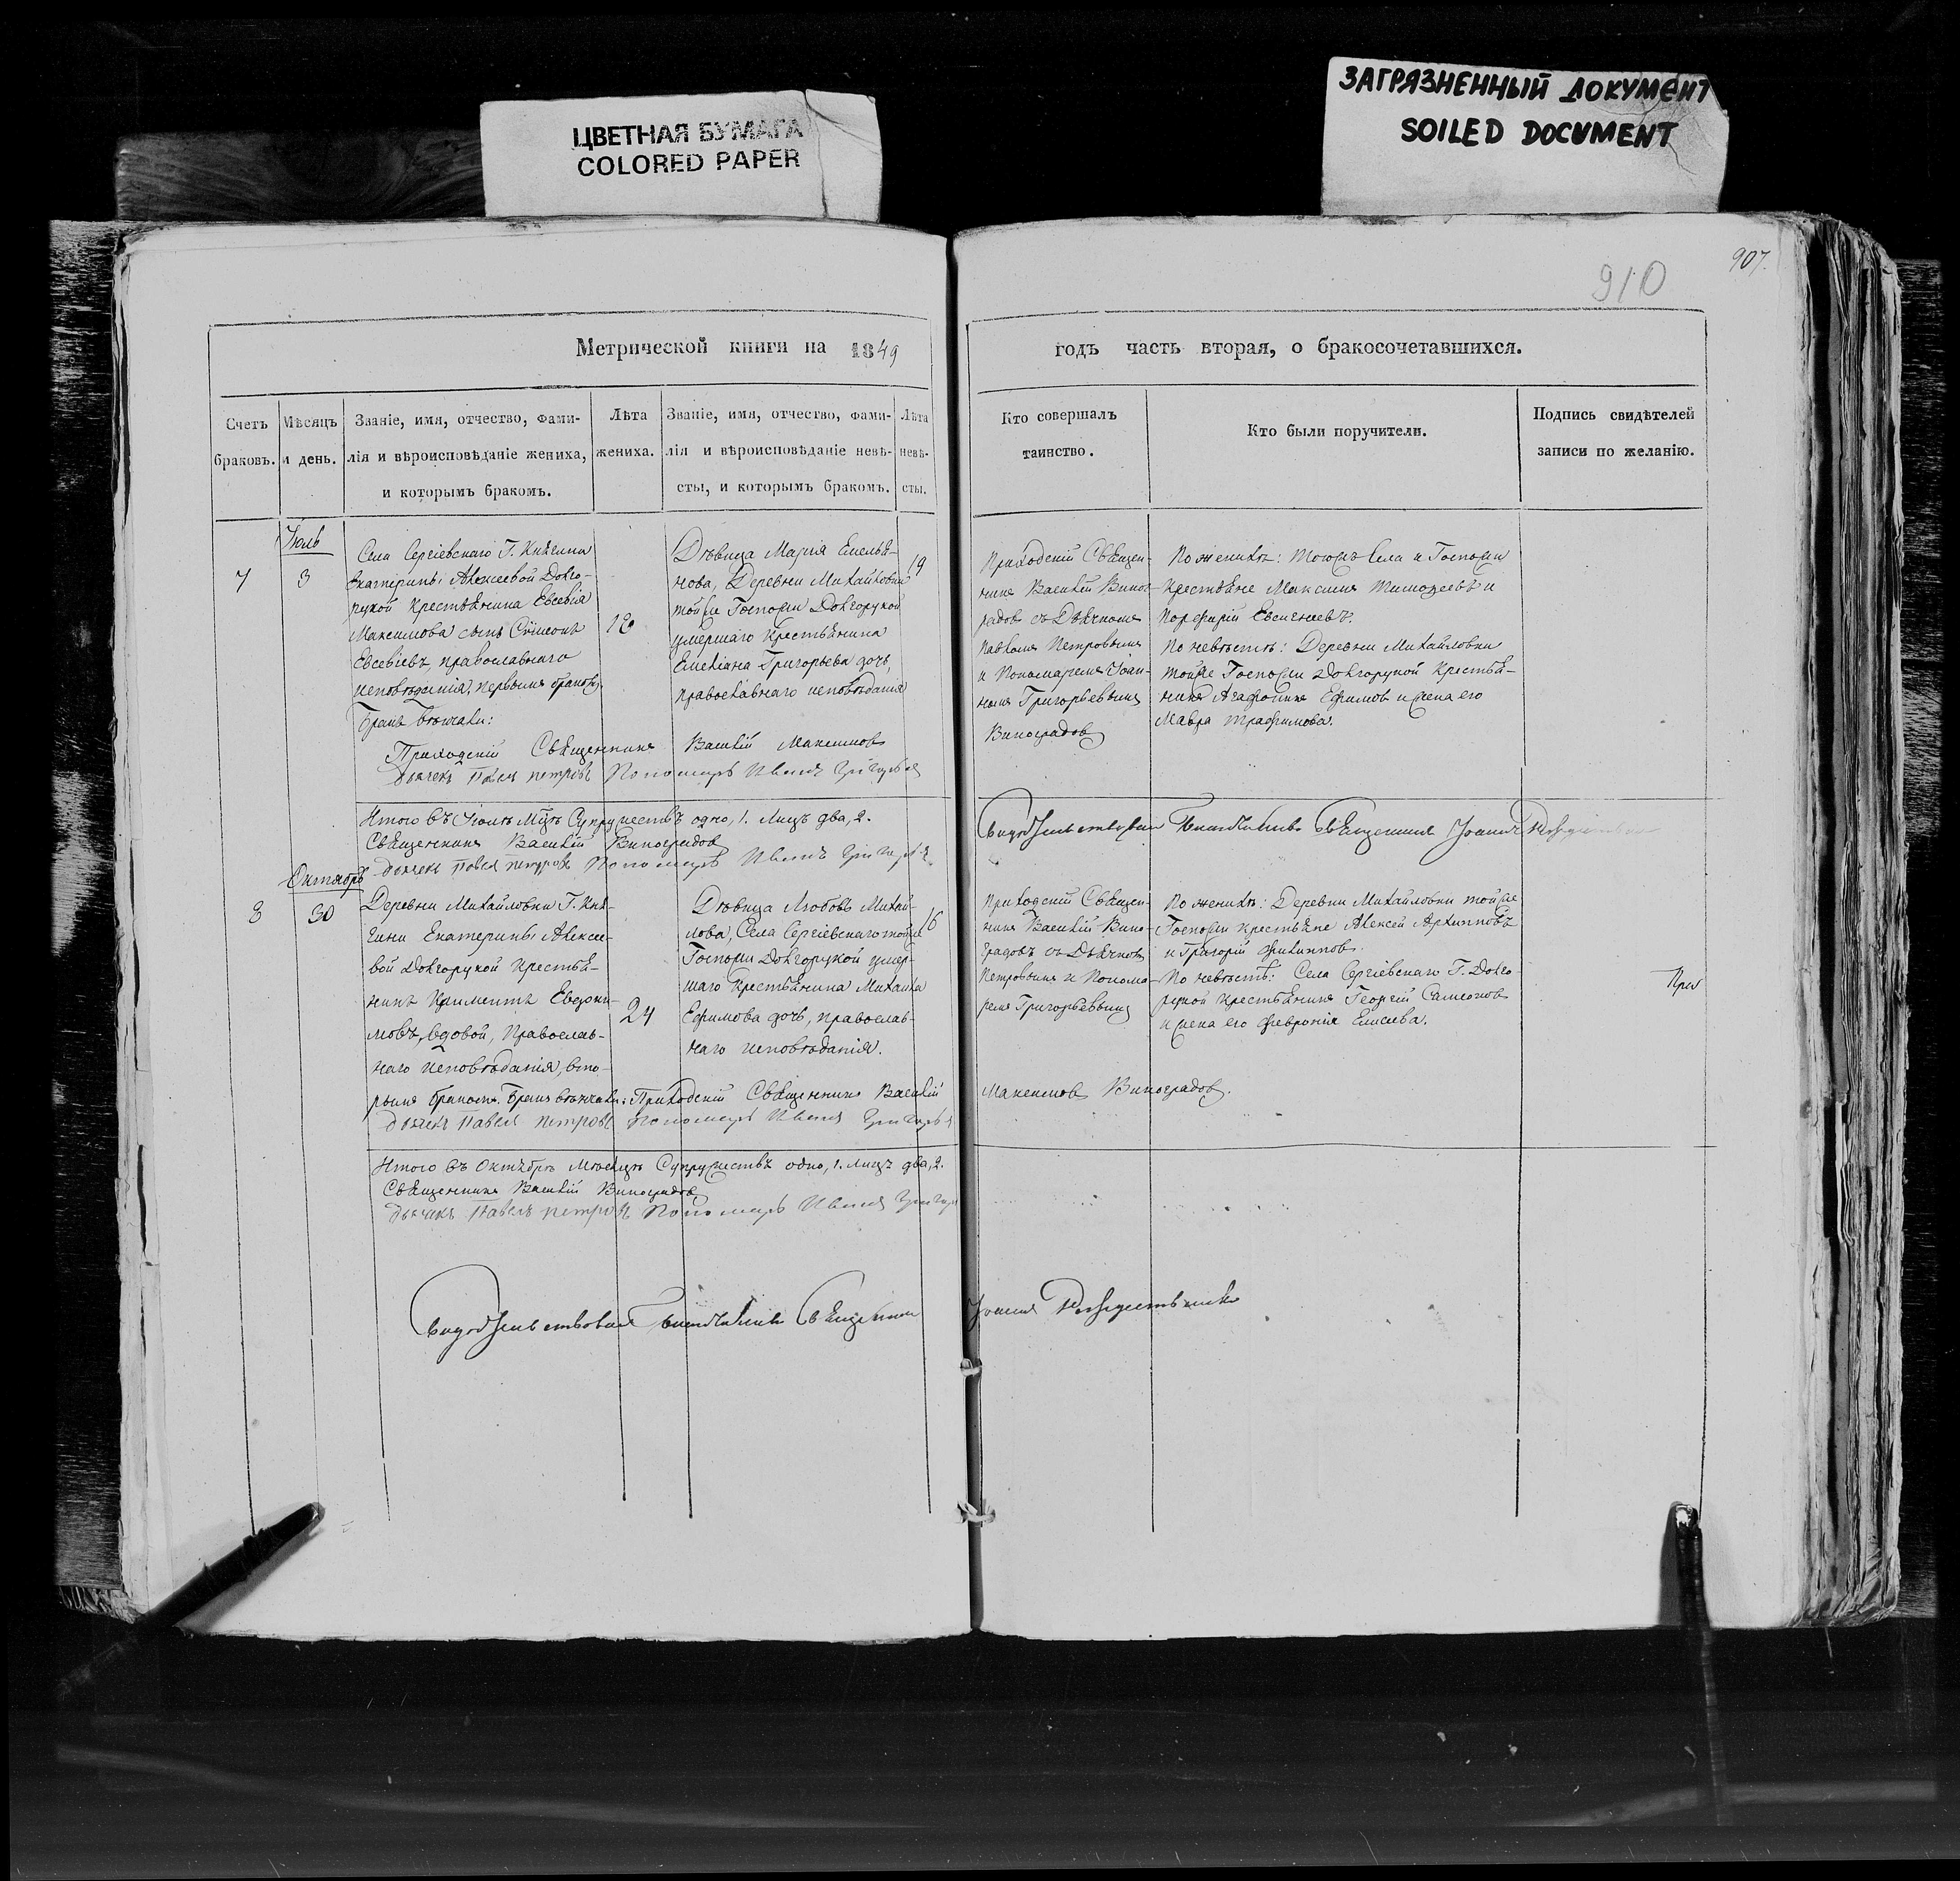 ЦВЕТНАЯ БУМАГА
COLORED PAPER
ЗАГРЯЗНЕННЫЙ ДОКУМЕНТ
SOILED DOCUMENT
907.
910
Метрической книги на 1849
годъ часть вторая, о бракосочетавшихся.
Счетъ
браковъ.
Мѣсяцъ
и день.
Званіе, имя, отчество, фами-
лія и вѣроисповѣданіе жениха,
и которымъ бракомъ.
Лѣта
жениха.
Званіе, имя, отчество, фами-
лія и вѣроисповѣданіе невѣ-
сты, и которымъ бракомъ.
Лѣта
невѣ-
сты.
Кто совершалъ
таинство.
Кто были поручители.
Подпись свидѣтелей
записи по желанію.
Июль
7
3
Села Сергіевскаго Г. Княгини
Екатерины Алексеевой Долго-
рукой Крестьянина Евсевія
Максимова сынъ Сѵмеонъ
Евсевіевъ, православнаго
исповѣданія, первымъ бракомъ.
18
Дѣвица Марія Емелья-
нова, Деревни Михайловки
тойже Госпожи Долгорукой
умершаго Крестьянина
Емеліана Григорьева дочь,
православнаго исповѣданія
19
Приходскій Священ-
никъ Василій Виног-
радовъ съ Дьячкомъ
Павломъ Петровымъ
и Пономаремъ Іоан-
номъ Григорьевымъ
Виноградовъ
По женихѣ: тогожъ Села и Госпожи
Крестьяне Максимъ Тимоѳеевъ и
Порфирій Евсигнеевъ.
По невѣстѣ: Деревни Михайловки
тойже Госпожи Долгорукой Крестья-
нинъ Агафоникъ Ефимовъ и жена его
Мавра Трафимова.
Бракъ вѣнчали:
Приходскій Священникъ Василій Максимовъ
Дьячекъ Павелъ Петровъ Пономарь Иванъ Григорьевъ
Итого въ Июлѣ М-цѣ Супружествъ одно, 1. Лицъ два, 2.
Священникъ Василій Виноградовъ
Дьячекъ Павелъ Петровъ Пономарь Иванъ Григорьевъ
Свидѣтельствовалъ Благочинный Священникъ Іоаннъ Рождественскій
Октябрь
8
30
Деревни Михайловки Г. Кня-
гини Екатерины Алексее-
вой Долгорукой Крестья-
нинъ Климентъ Евдоки-
мовъ, вдовой, Православ-
наго Исповѣданія, вто-
рымъ бракомъ. Бракъ вѣнчали: Приходскій Священникъ Василій
Максимовъ Виноградовъ.
24
Дѣвица Любовь Михай-
лова, Села Сергіевскаго тойже
Госпожи Долгорукой умер-
шаго Крестьянина Михаила
Ефимова дочь, православ-
наго исповѣданія.
16
Приходскій Священ-
никъ Василій Вино-
градовъ съ Дьячкомъ
Петровымъ и Понома-
ремъ Григорьевымъ
По женихѣ: Деревни Михайловки тойже
Госпожи крестьяне Алексей Архипповъ
и Григорій Филипповъ.
По невѣстѣ: Села Сергіевскаго Г. Долго-
рукой Крестьянинъ Георгій Самсоновъ
и жена его Февронія Елисеева.
При
Дьячекъ Павелъ Петровъ Пономарь Иванъ Григорьевъ
Итого въ Октябрѣ Мѣсяцѣ Супружествъ одно, 1. лицъ два, 2.
Священникъ Василій Виноградовъ
Дьячекъ Павелъ Петровъ Пономарь Иванъ Григорьевъ
Свидѣтельствовалъ Благочинный Священникъ Іоаннъ Рождественскій